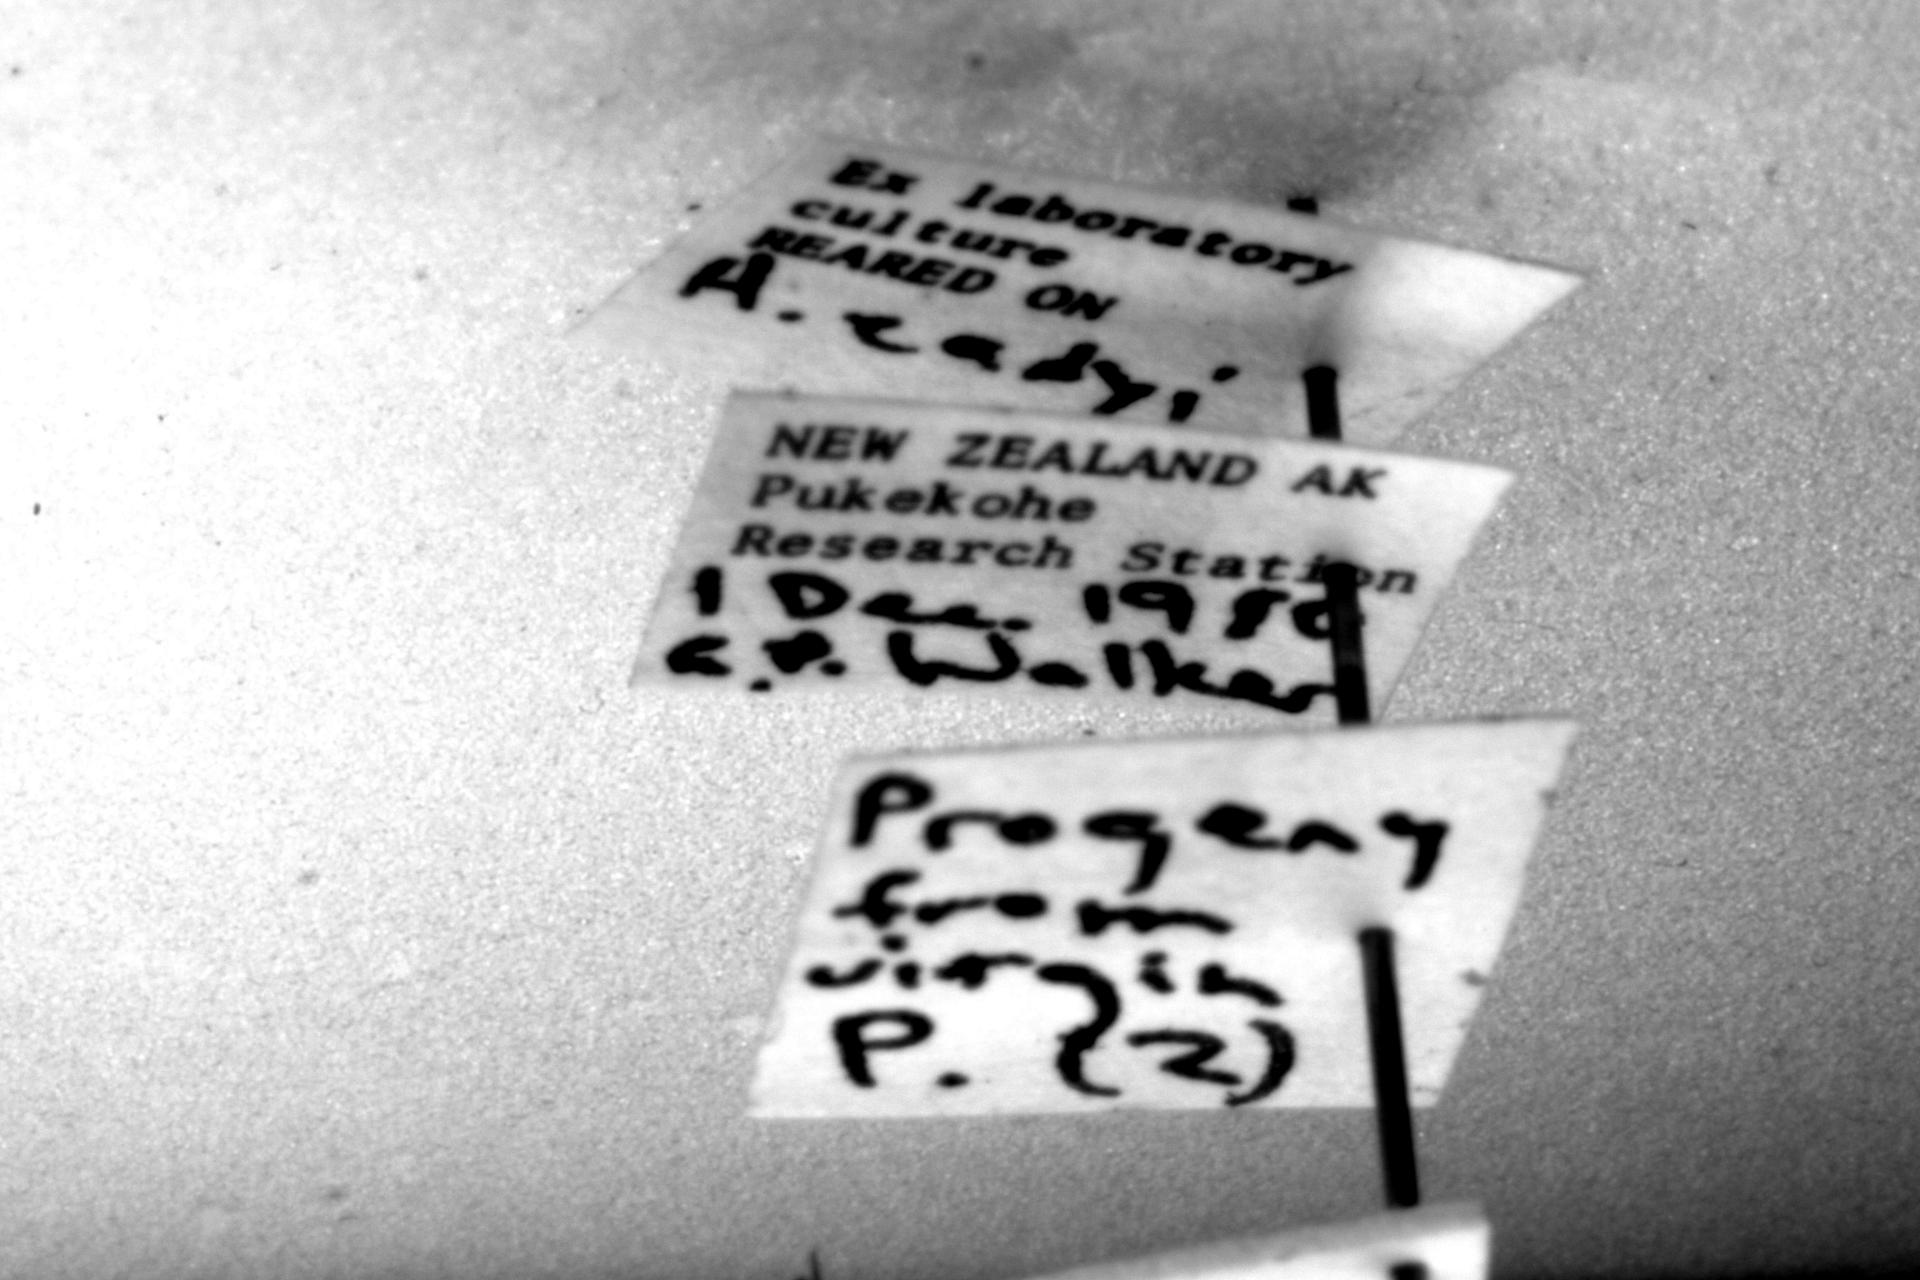 Ex laboratory
culture
REARED ON
A. eadyi
NEW ZEALAND AK
Pukekohe
Research Station
1 Dec. 1980
G.P. Walker
Progeny
from
virgin
P. (2)